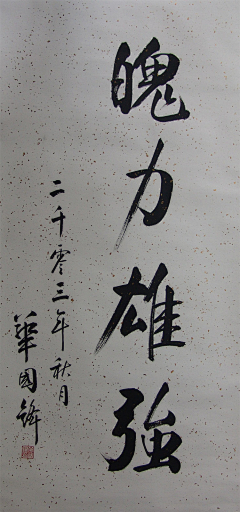 魄力雄強
二千零三年秋月
華國鋒